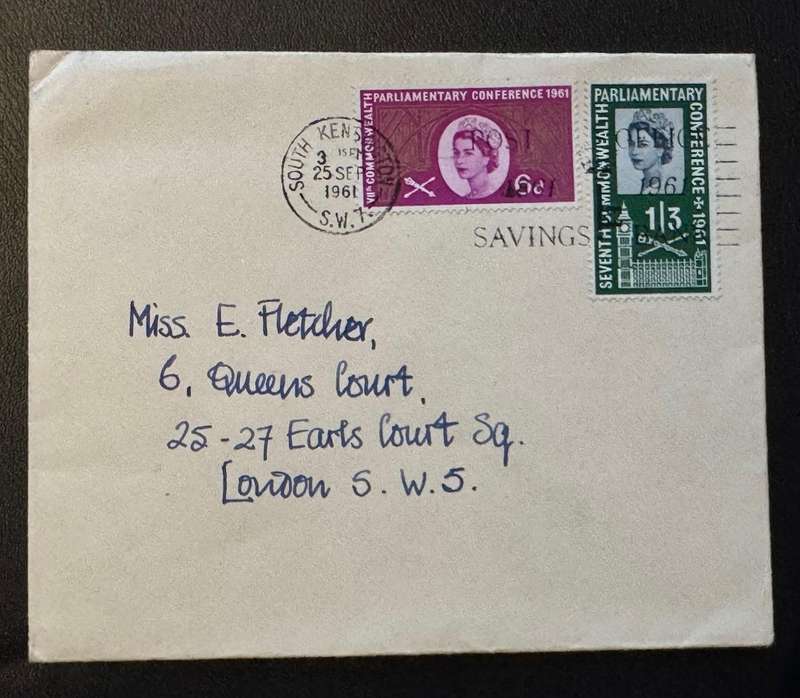 SOUTH KENSINGTON
3
25 SEP
1961
S.W.7.
VIIth COMMONWEALTH PARLIAMENTARY CONFERENCE 1961
6d
SEVENTH COMMONWEALTH PARLIAMENTARY CONFERENCE 1961
1/3
POST OFFICE
1861 1961
SAVINGS BANK
Miss. E. Fletcher,
6, Queens Court,
25-27 Earls Court Sq.
London S. W. 5.